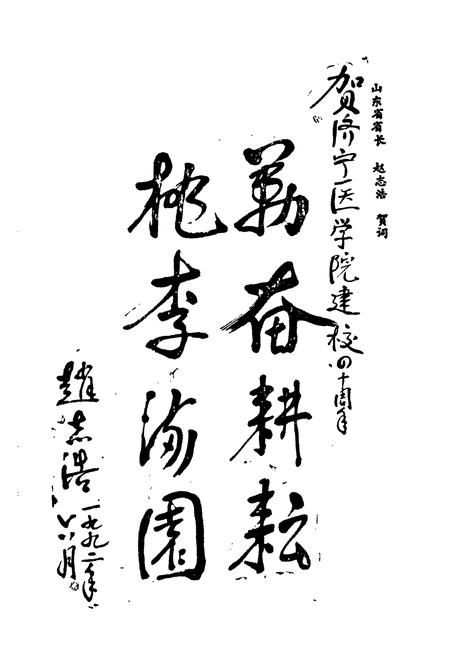 山东省省长 赵志浩 贺词
贺济宁医学院建校四十周年
勤奋耕耘
桃李满園
趙志浩
一九九二年
八月